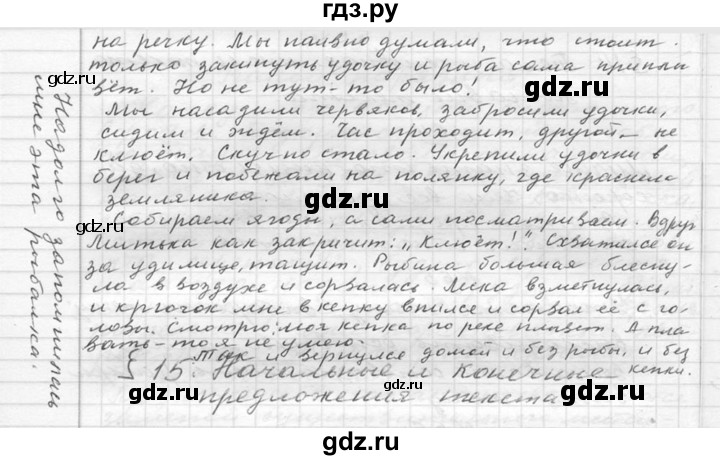 гдз.ру
на речку. Мы наивно думали, что стоит
только закинуть удочку и рыба сама приплы
вёт. Но не тут-то было!
Мы насадили червяков, забросили удочки,
сидим и ждём. Час проходит, другой – не
клюёт. Скучно стало. Укрепили удочки в
берег и побежали на полянку, где краснела
земляника.
Собираем ягоды, а сами посматриваем. Вдруг
Митька как закричит: „Клюёт!". Схватился он
за удилище, тащит. Рыбина большая блесну-
ла в воздухе и сорвалась. Леска взметнулась,
и крючок мне в кепку впился и сорвал её с го-
ловы. Смотрю: моя кепка по реке плывет. А пла
вать-то я не умею.
Так и вернулся домой и без рыбы, и без
кепки.
Надолго запомнилась
мне эта рыбалка.
§ 15. Начальные и конечные
предложения текста
gdz.ru
gdz.ru
gdz.ru
gdz.ru
gdz.ru
gdz.ru
gdz.ru
gdz.ru
gdz.ru
gdz.ru
gdz.ru
gdz.ru
gdz.ru